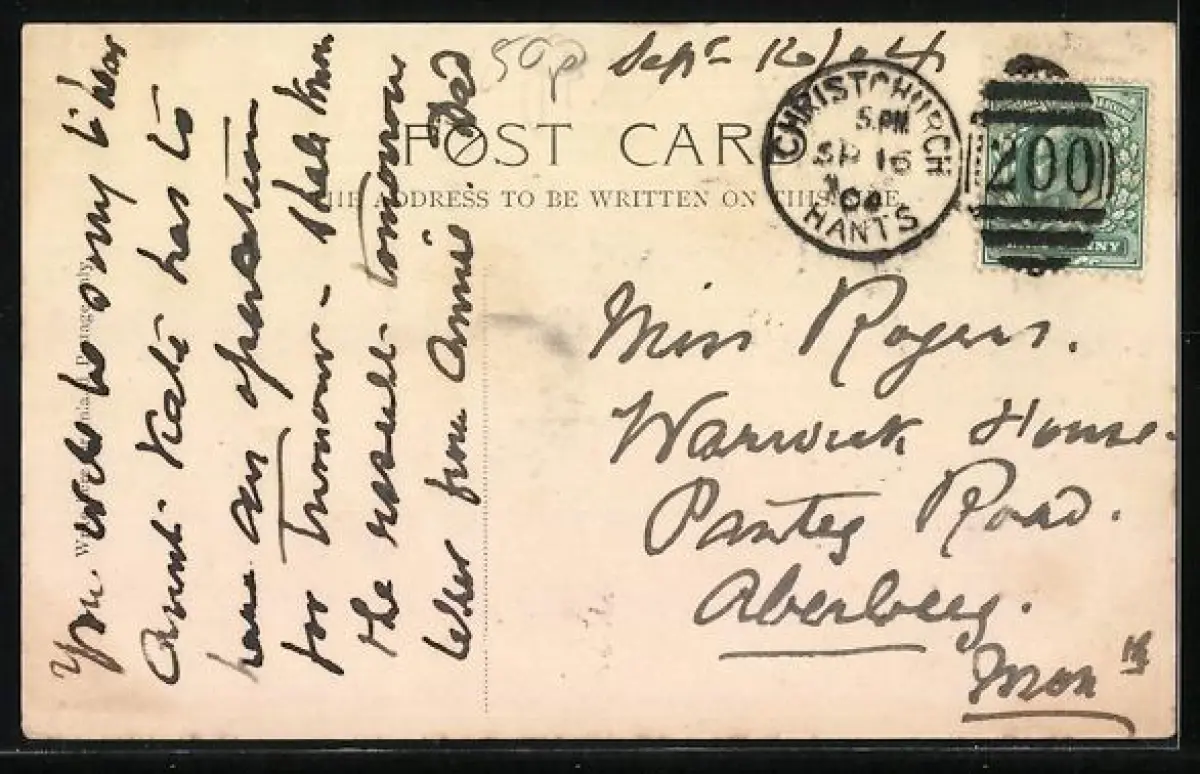 50p Sept 16/04
POST CARD
THE ADDRESS TO BE WRITTEN ON THIS SIDE.
CHRISTCHURCH
5.PM
SP 16
04
HANTS
200
You will be sorry to hear
Aunt Kate has to
have an operation
for tumour - shall know
the result tomorrow
letter from Annie. Dad
Miss Rogers.
Warwick House.
Panteg Road.
Aberbeeg.
Mon th